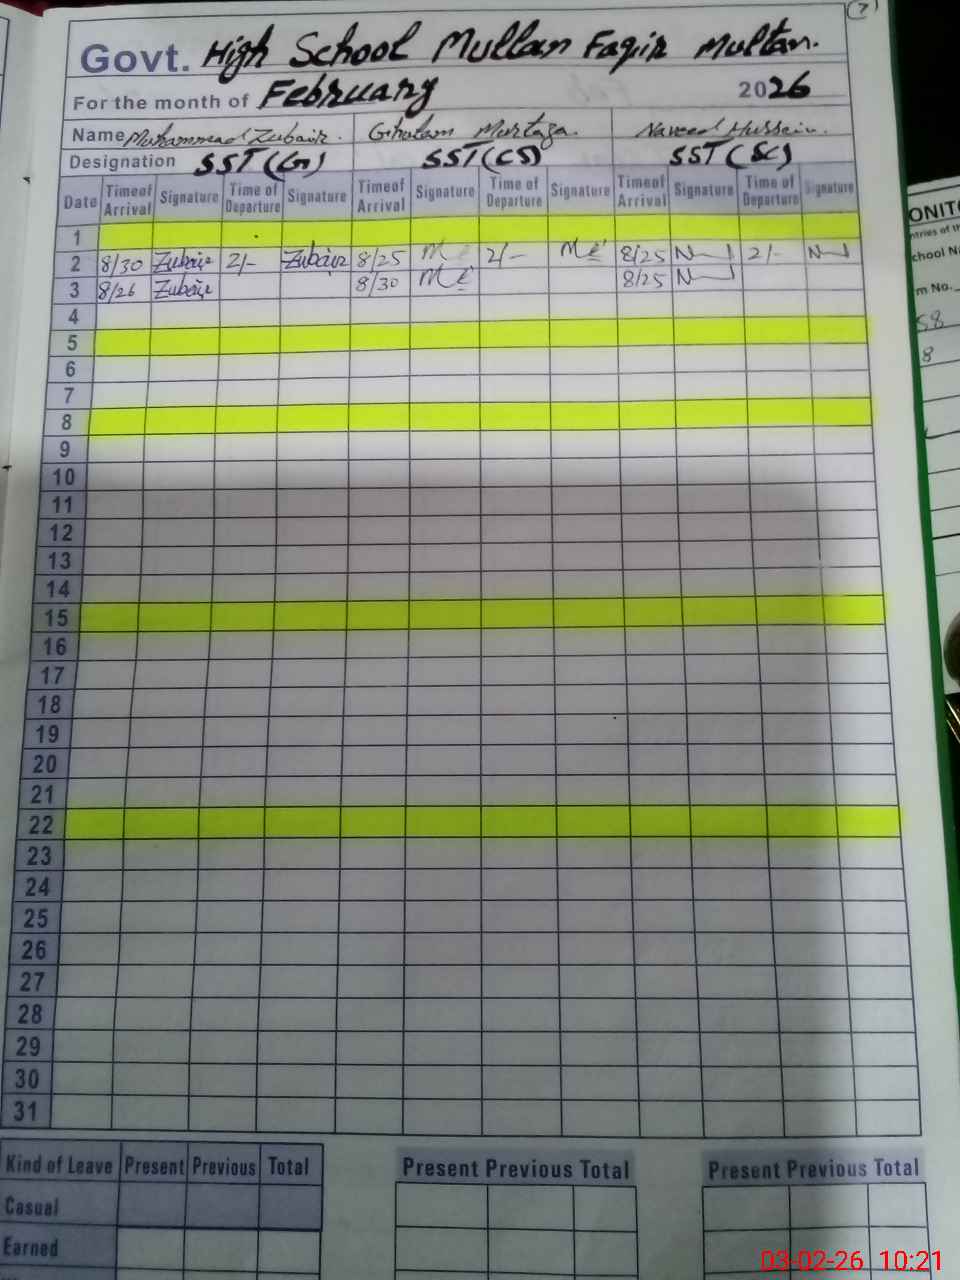 (2)
Govt. High School Mullan Faqir Multan.
For the month of February 2026
Name Muhammad Zubair. Ghulam Murtaza. Naveed Hussain.
Designation SST(G) SST(CS) SST(SC)
Date Time of Arrival Signature Time of Departure Signature Time of Arrival Signature Time of Departure Signature Time of Arrival Signature Time of Departure Signature
1
2 8/30 Zubair 2/- Zubair 8/25 2/- 8/25 2/-
3 8/26 Zubair 8/30 8/25
4
5
6
7
8
9
10
11
12
13
14
15
16
17
18
19
20
21
22
23
24
25
26
27
28
29
30
31
Kind of Leave Present Previous Total Present Previous Total Present Previous Total
Casual
Earned
ONITO
ntries of th
chool Na
m No.
58
8
03-02-26 10:21